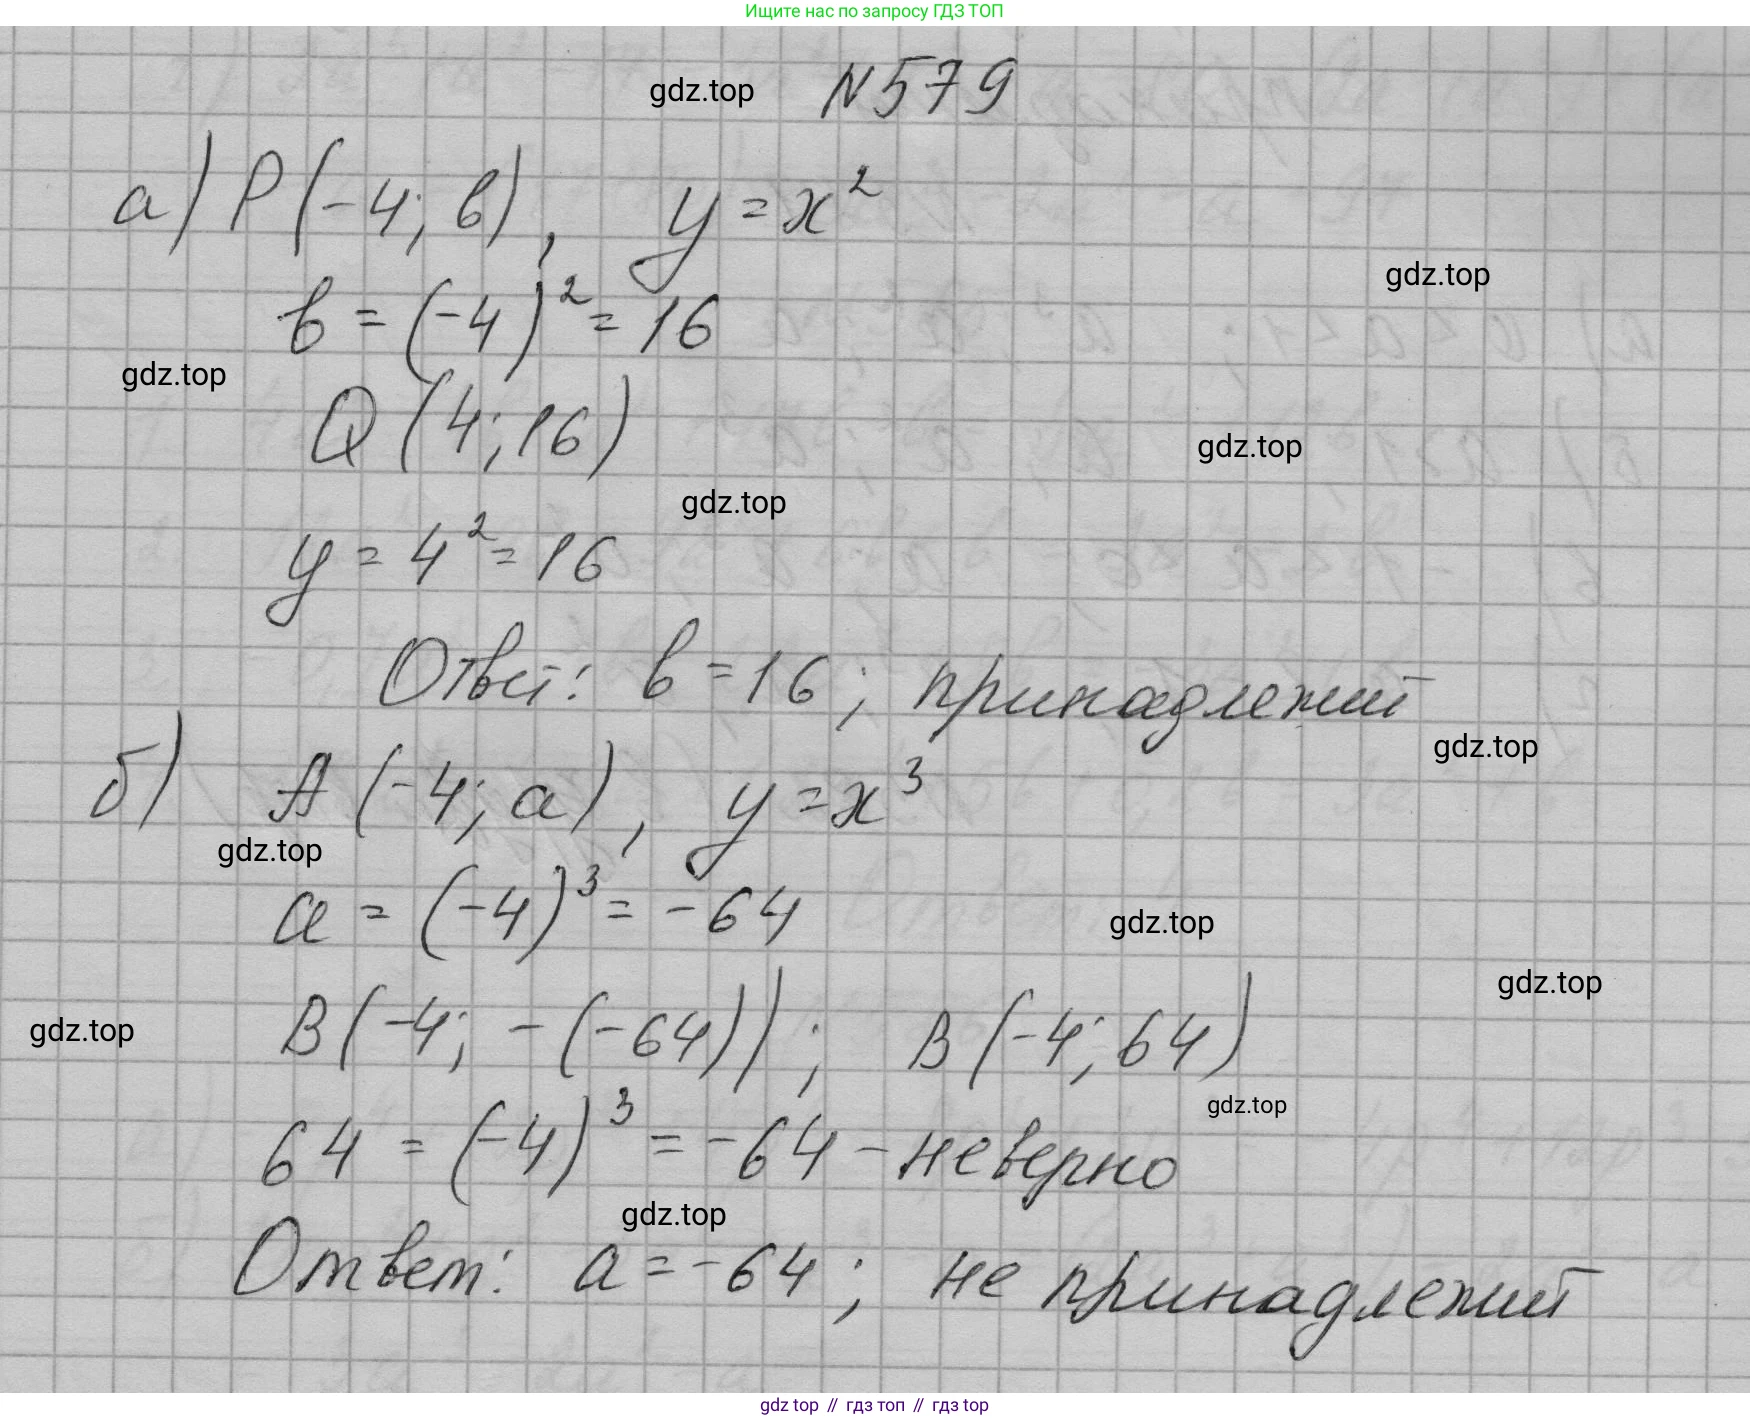 Ищите нас по запросу ГДЗ ТОП
gdz.top N 579
а) P(-4; в), y = x²
gdz.top
в = (-4)² = 16
gdz.top
Q (4; 16)
gdz.top
gdz.top
y = 4² = 16
Ответ: в = 16; принадлежит
gdz.top
б) A (-4; a), y = x³
gdz.top
a = (-4)³ = -64
gdz.top
gdz.top
gdz.top
B(-4; -(-64)); B(-4; 64)
gdz.top
64 = (-4)³ = -64 - неверно
gdz.top
Ответ: a = -64; не принадлежит
gdz top // гдз топ // gdz top